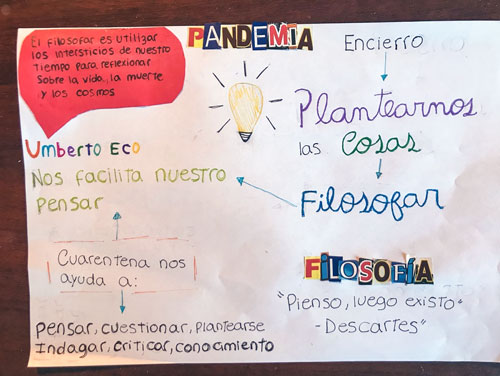 El filosofar es utilizar
los intersticios de nuestro
tiempo para reflexionar
sobre la vida, la muerte
y los cosmos
PANDEMIA
Encierro
Plantearnos
las Cosas
Filosofar
Umberto Eco
Nos facilita nuestro
pensar
Cuarentena nos
ayuda a:
Pensar, cuestionar, plantearse
Indagar, criticar, conocimiento
FILOSOFÍA
"Pienso, luego existo"
-Descartes"